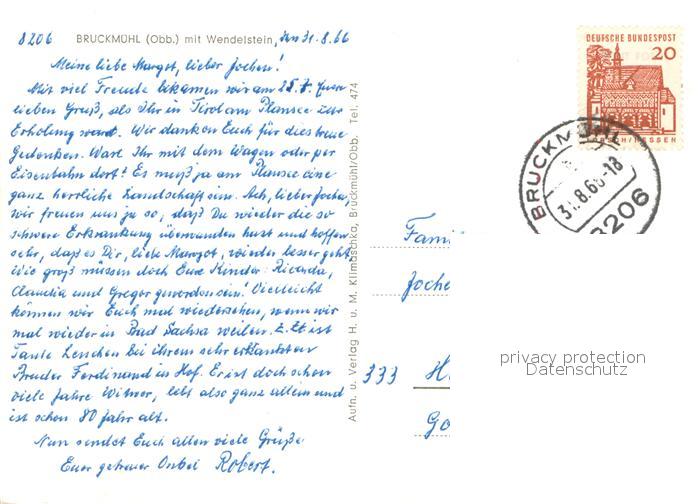 8206 BRUCKMÜHL (Obb.) mit Wendelstein, den 31.8.66
Meine liebe Margot, lieber Jochen!
Mit viel Freude bekamen wir am 25.7. Euren
lieben Gruß, als Ihr in Tirol am Plansee zur
Erholung wart. Wir danken Euch für dies treue
Gedenken. Wart Ihr mit dem Wagen oder per
Eisenbahn dort? Es muß ja am Plansee eine
ganz herrliche Landschaft sein. Ach, lieber Jochen,
wir freuen uns ja so, daß Du wieder die so
schwere Erkrankung überwunden hast und hoffen
sehr, daß es Dir, liebe Margot, wieder besser geht.
Wie groß müssen doch Eure Kinder Ricarda,
Claudia und Gregor geworden sein! Vielleicht
können wir Euch mal wiedersehen, wenn wir
mal wieder in Bad Sachsa weilen. Z. Zt ist
Tante Lenchen bei ihrem sehr erkrankten
Bruder Ferdinand in Hof. Er ist doch schon
viele Jahre Witwer, lebt also ganz allein und
ist schon 80 Jahr alt.
Nun sendet Euch allen viele Grüße
Euer getreuer Onkel Robert.
Aufn. u. Verlag H. u. M. Klimaschka, Bruckmühl/Obb. Tel. 474
DEUTSCHE BUNDESPOST
20
LORSCH/HESSEN
BRUCKMÜHL
31.8.66-18
8206
Fami
Joche
333 H
Go
privacy protection
Datenschutz